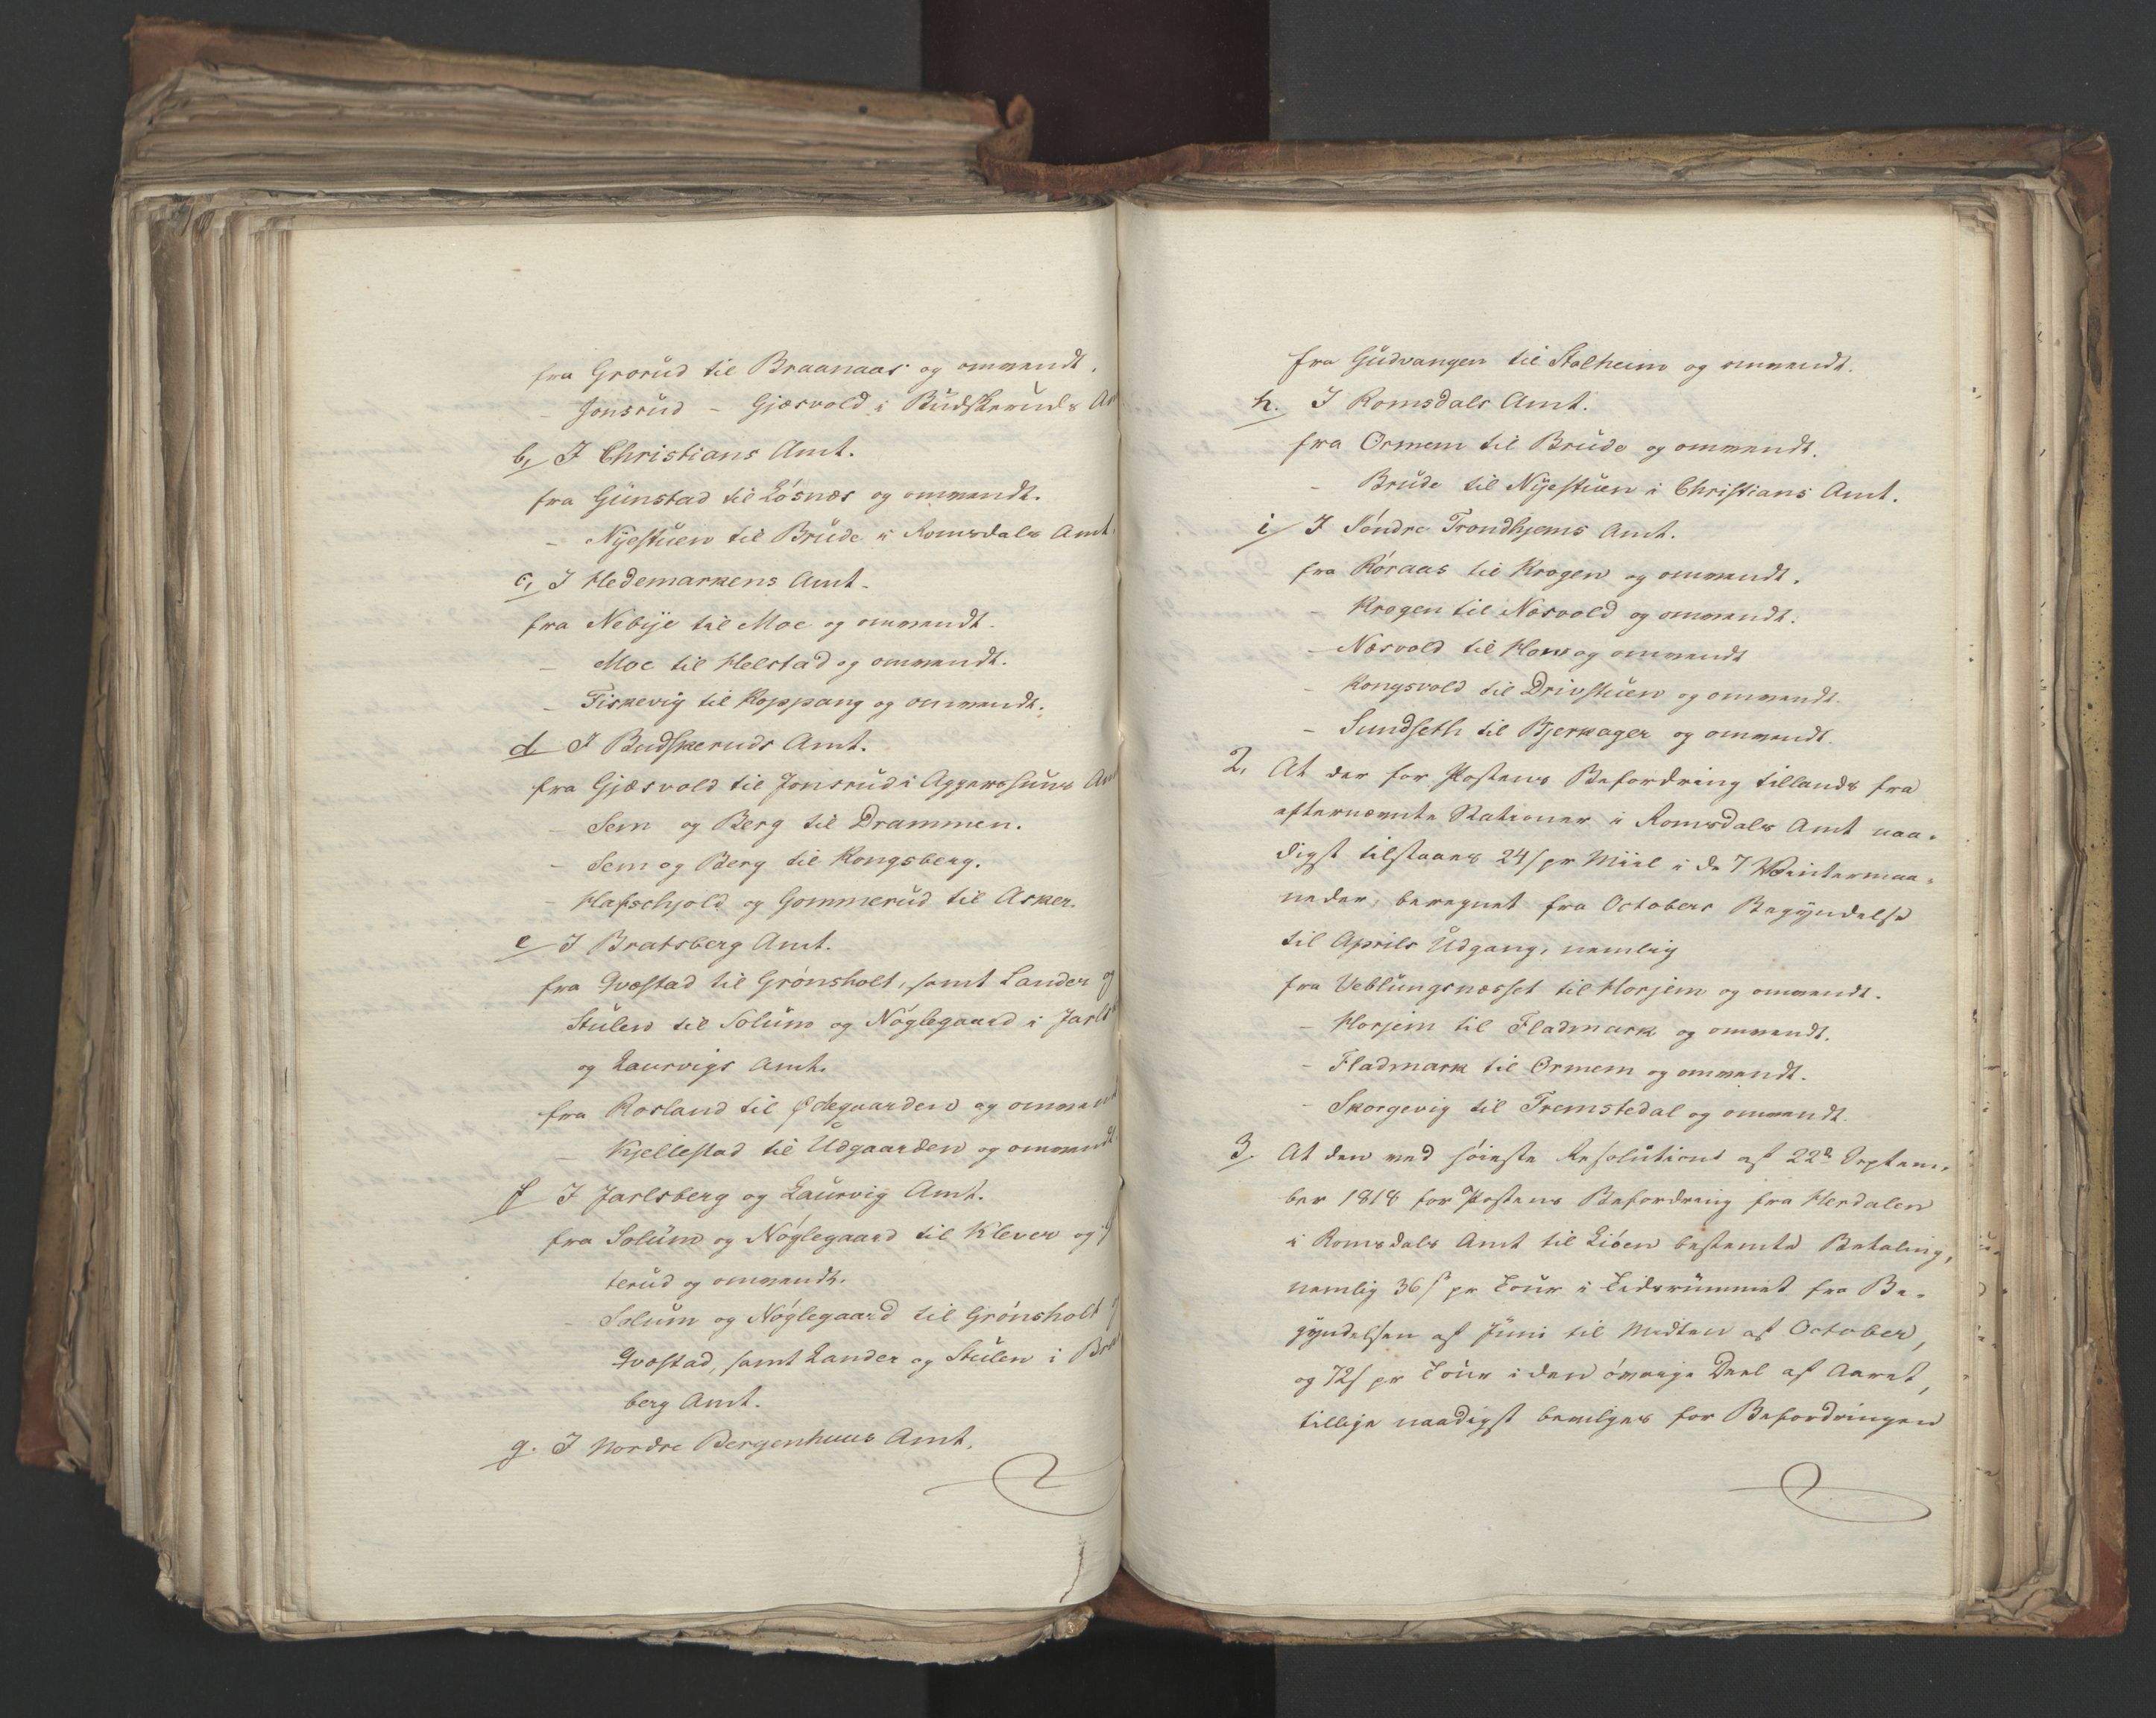 fra Grorud til Braanaas og omvendt.
- Jonsrud - Gjæsvold i Budskeruds
b, I Christians Amt.
fra Gunstad til Lósnæs og omvendt.
- Nÿestuen til Brude i Romsdals Amt.
c, I Hedemarkens Amt.
fra Nebÿe til Moe og omvendt.
- Moe til Helstad og omvendt.
- Fiskevig til Koppang og omvendt.
d I Budskeruds Amt.
fra Gjæsvold til Jonsrud i Aggershuus
- Sem og Berg til Drammen.
- Sem og Berg til Kongsberg.
- Hafschjold og Gommerud til Asker.
e I Bratsberg Amt.
fra Qvæstad til Grónsholt, samt Lander og
Stulen til Solum og Nóglegaard i Jarls
og Laurvigs Amt.
fra Rosland til Ødegaarden og omvendt
- Kjellestad til Udgaarden og omvendt.
f I Jarlsberg og Laurvig Amt.
fra Solum og Nóglegaard til Klever og
terud og omvendt.
- Solum og Nóglegaard til Grónsholt
Qvæstad, samt Lander og Stulen i
berg Amt.
g. I Nordre Bergenhuus Amt.
fra Gudvangen til Stalheim og omvendt.
h. I Romsdals Amt.
fra Ormem til Brude og omvendt.
- Brude til Nÿestuen i Christians Amt.
i I Sóndre Trondhjems Amt.
fra Róraas til Krogen og omvendt.
- Krogen til Næsvold og omvendt.
- Næsvold til Hov og omvendt
- Kongsvold til Drivstuen og omvendt.
- Sundseth til Bjerkager og omvendt.
2, At der for Postens Befordring tillands fra
efternævnte Stationer i Romsdals Amt naa-
digst tilstaaes 24 s pr Miil i de 7 Vintermaa-
neder, beregnet fra Octobers Begÿndelse
til Aprils Udgang, nemlig
fra Veblungsnæsset til Horjem og omvendt.
- Horjem til Fladmark og omvendt.
- Fladmark til Ormem og omvendt.
- Skorgevig til Tremstedal og omvendt.
3. At den ved hóieste Resolution af 22d Septem-
ber 1818 for Postens Befordring fra Herdalen
i Romsdals Amt til Lióen bestemte Betaling,
nemlig 36 s pr Tour i Tidsrummet fra Be-
gÿndelsen af Juni til Midten af October,
og 72 s pr Tour i den óvrige Deel af Aaret,
tillige naadigst bevilges for Befordringen